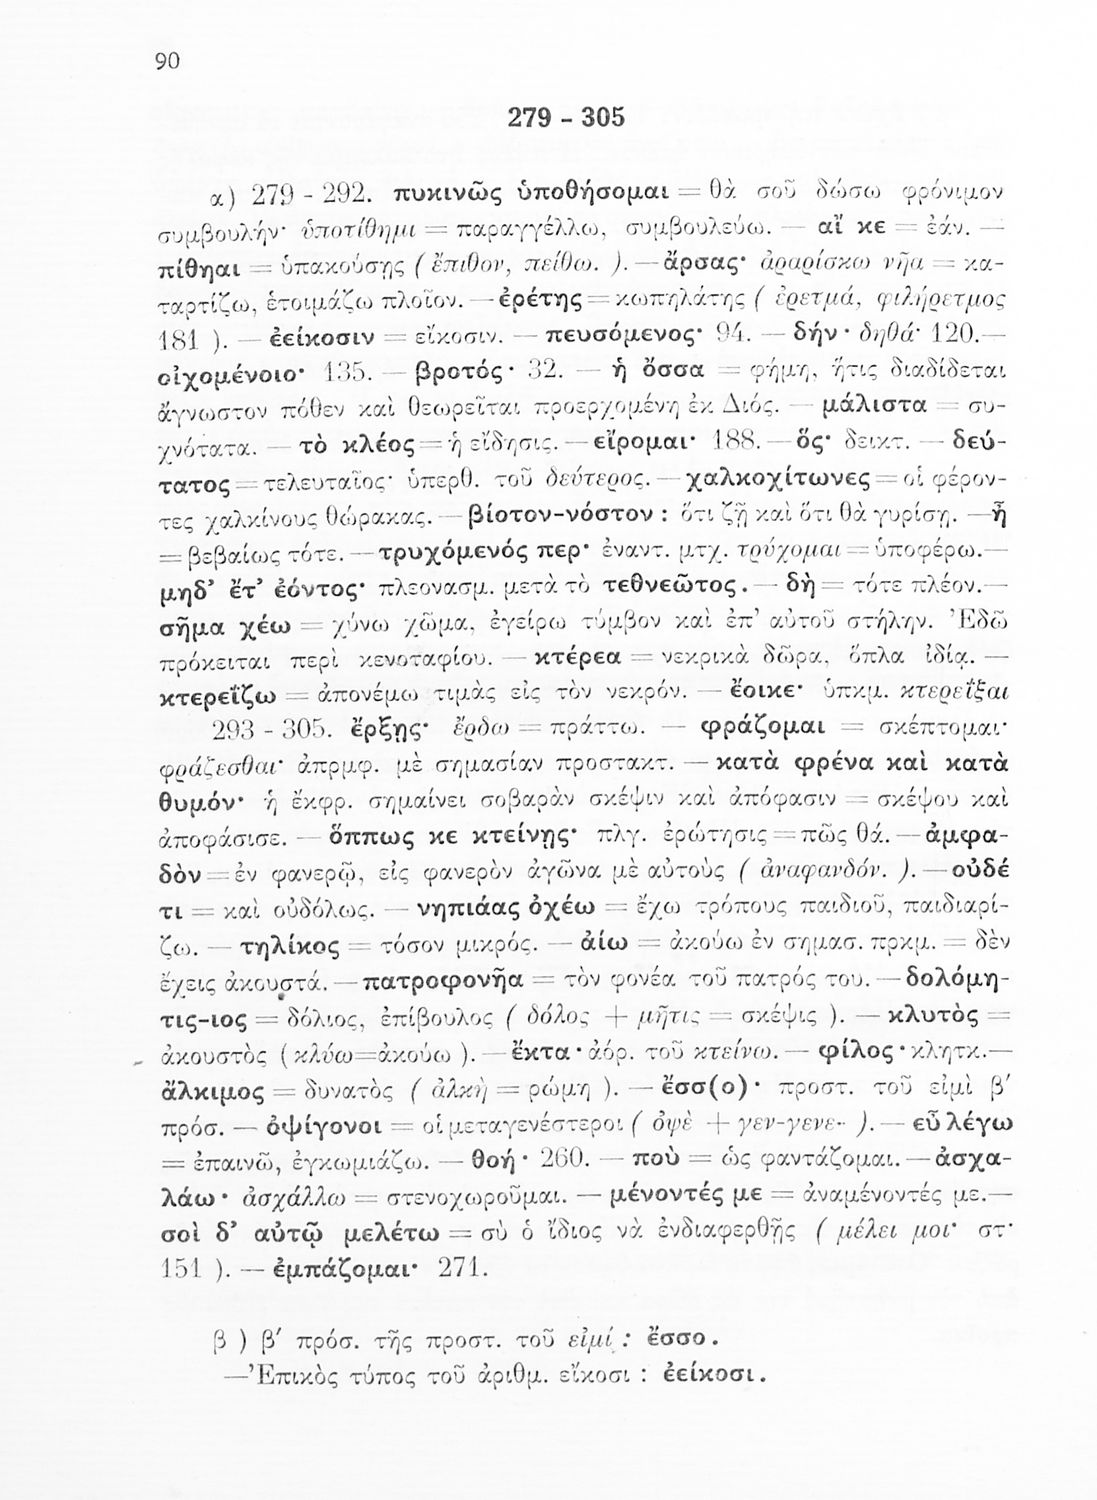 90
279 - 305
α) 279 - 292. πυκινῶς ὑποθήσομαι = θὰ σοῦ δώσω φρόνιμον
συμβουλήν· ὑποτίθημι = παραγγέλλω, συμβουλεύω. — αἴ κε = ἐάν. —
πίθηαι = ὑπακούσῃς ( ἔπιθον, πείθω. ). — ἄρσας· ἀραρίσκω νῆα = κα-
ταρτίζω, ἑτοιμάζω πλοῖον. — ἐρέτης = κωπηλάτης ( ἐρετμά, φιλήρετμος
181 ). — ἐείκοσιν = εἴκοσιν. — πευσόμενος· 94. — δήν · δηθά· 120. —
οἰχομένοιο· 135. — βροτός · 32. — ἡ ὄσσα = φήμη, ἥτις διαδίδεται
ἄγνωστον πόθεν καὶ θεωρεῖται προερχομένη ἐκ Διός. — μάλιστα = συ-
χνότατα. — τὸ κλέος = ἡ εἴδησις. — εἴρομαι· 188. — ὅς· δεικτ. — δεύ-
τατος = τελευταῖος· ὑπερθ. τοῦ δεύτερος. — χαλκοχίτωνες = οἱ φέρον-
τες χαλκίνους θώρακας. — βίοτον-νόστον : ὅτι ζῇ καὶ ὅτι θὰ γυρίσῃ. — ἦ
= βεβαίως τότε. — τρυχόμενός περ· ἐναντ. μτχ. τρύχομαι = ὑποφέρω. —
μηδ’ ἔτ’ ἐόντος· πλεονασμ. μετὰ τὸ τεθνεῶτος. — δὴ = τότε πλέον. —
σῆμα χέω = χύνω χῶμα, ἐγείρω τύμβον καὶ ἐπ’ αὐτοῦ στήλην. Ἐδῶ
πρόκειται περὶ κενοταφίου. — κτέρεα = νεκρικὰ δῶρα, ὅπλα ἰδίᾳ. —
κτερεΐζω = ἀπονέμω τιμὰς εἰς τὸν νεκρόν. — ἔοικε· ὑπκμ. κτερεΐξαι
293 - 305. ἔρξῃς· ἔρδω = πράττω. — φράζομαι = σκέπτομαι·
φράζεσθαι· ἀπρμφ. μὲ σημασίαν προστακτ. — κατὰ φρένα καὶ κατὰ
θυμόν· ἡ ἔκφρ. σημαίνει σοβαρὰν σκέψιν καὶ ἀπόφασιν = σκέψου καὶ
ἀποφάσισε. — ὅππως κε κτείνῃς· πλγ. ἐρώτησις = πῶς θά. — ἀμφα-
δὸν = ἐν φανερῷ, εἰς φανερὸν ἀγῶνα μὲ αὐτοὺς ( ἀναφανδόν. ). — οὐδέ
τι = καὶ οὐδόλως. — νηπιάας ὀχέω = ἔχω τρόπους παιδιοῦ, παιδιαρί-
ζω. — τηλίκος = τόσον μικρός. — ἀίω = ἀκούω ἐν σημασ. πρκμ. = δὲν
ἔχεις ἀκουστά. — πατροφονῆα = τὸν φονέα τοῦ πατρός του. — δολόμη-
τις-ιος = δόλιος, ἐπίβουλος ( δόλος + μῆτις = σκέψις ). — κλυτὸς =
ἀκουστὸς ( κλύω = ἀκούω ). — ἔκτα · ἀόρ. τοῦ κτείνω. — φίλος · κλητκ. —
ἄλκιμος = δυνατὸς ( ἀλκὴ = ρώμη ). — ἔσσ(ο) · προστ. τοῦ εἰμὶ β′
πρόσ. — ὀψίγονοι = οἱ μεταγενέστεροι ( ὀψὲ + γεν-γενε- ). — εὖ λέγω
= ἐπαινῶ, ἐγκωμιάζω. — θοή · 260. — ποὺ = ὡς φαντάζομαι. — ἀσχα-
λάω · ἀσχάλλω = στενοχωροῦμαι. — μένοντές με = ἀναμένοντές με. —
σοὶ δ’ αὐτῷ μελέτω = σὺ ὁ ἴδιος νὰ ἐνδιαφερθῇς ( μέλει μοι· στ·
151 ). — ἐμπάζομαι· 271.
β ) β′ πρόσ. τῆς προστ. τοῦ εἰμί : ἔσσο.
— Ἐπικὸς τύπος τοῦ ἀριθμ. εἴκοσι : ἐείκοσι.